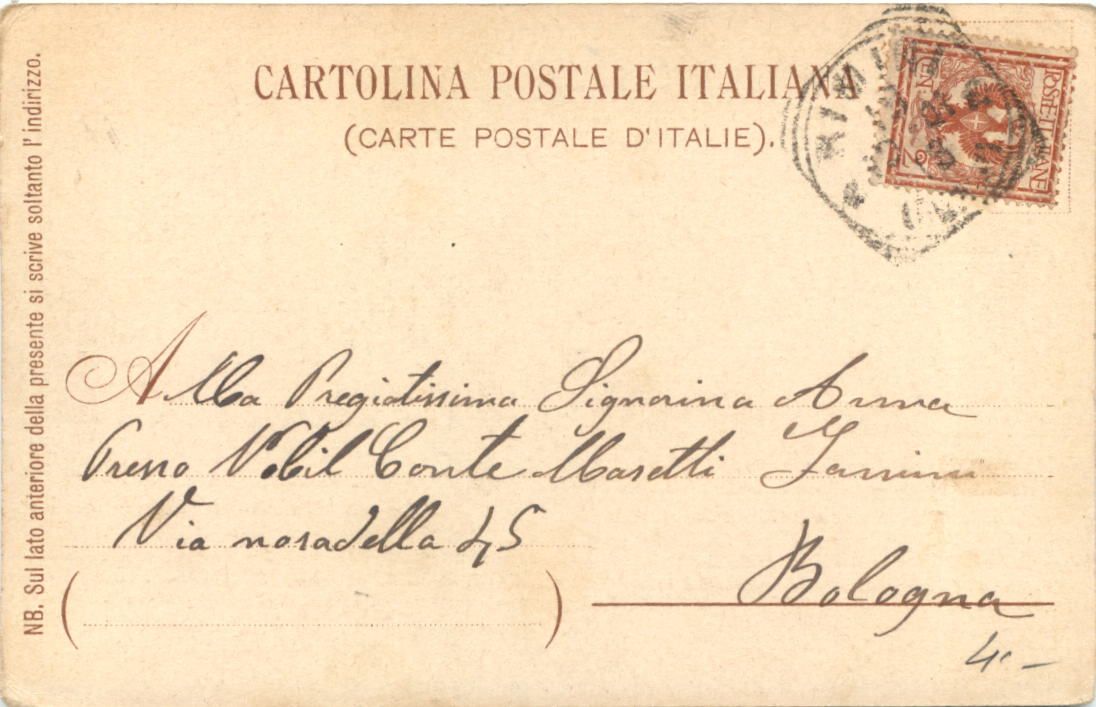 CARTOLINA POSTALE ITALIANA
(CARTE POSTALE D'ITALIE).
RIMINI
POSTE ITALIANE
CEN
2
NB. Sul lato anteriore della presente si scrive soltanto l'indirizzo.
Alla Pregiatissima Signorina Anna
Presso Nobil Conte Masetti Zannini
Via nosadella 45
Bologna
4.-